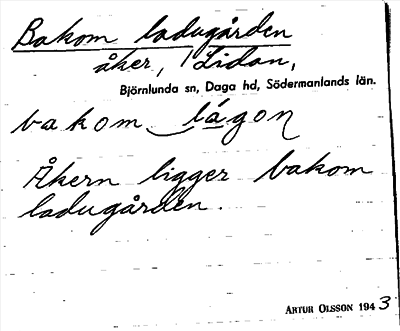 Bakom ladugården
åker, Lidan,
Björnlunda sn, Daga hd, Södermanlands län.
bakom lágon
Åkern ligger bakom
ladugården.
ARTUR OLSSON 1943